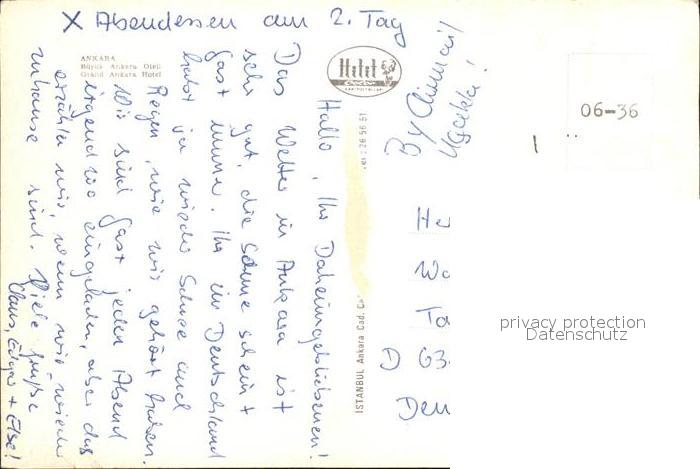 X Abendessen am 2. Tag
ANKARA
Büyük Ankara Oteli
Grand Ankara Hotel
Hallo, Ihr Daheimgebliebenen!
Das Wetter in Ankara ist
sehr gut, die Sonne scheint
fast immer. Ihr in Deutschland
habt ja wieder Schnee und
Regen, wie wir gehört haben.
Wir sind fast jeden Abend
irgendwo eingeladen, aber das
erzählen wir, wenn wir wieder
zuhause sind. Viele Grüße
Claus, Edgar + Else!
Hitit
ISTANBUL Ankara Cad.
26 56 61
By Airmail
Uçakla!
He
Wo
Ta
D 63
Deu
06-36
privacy protection
Datenschutz